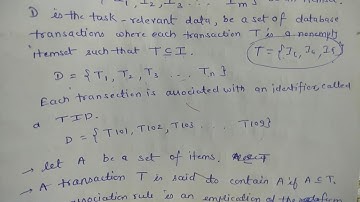 I₁, I₂, I₃ ... Im} be an itemset
D is the task-relevant data, be a set of database
transactions where each transaction T is a nonempty
itemset such that T⊆I. T = {I₁, I₂, I₅}
D = {T₁, T₂, T₃ ... Tn}
Each transection is associated with an identifier, called
a TID.
D = {T101, T102, T103 ... T109}
→ let A be a set of items.
→ A transaction T is said to contain A if A⊆T.
association rule is an implication of the form